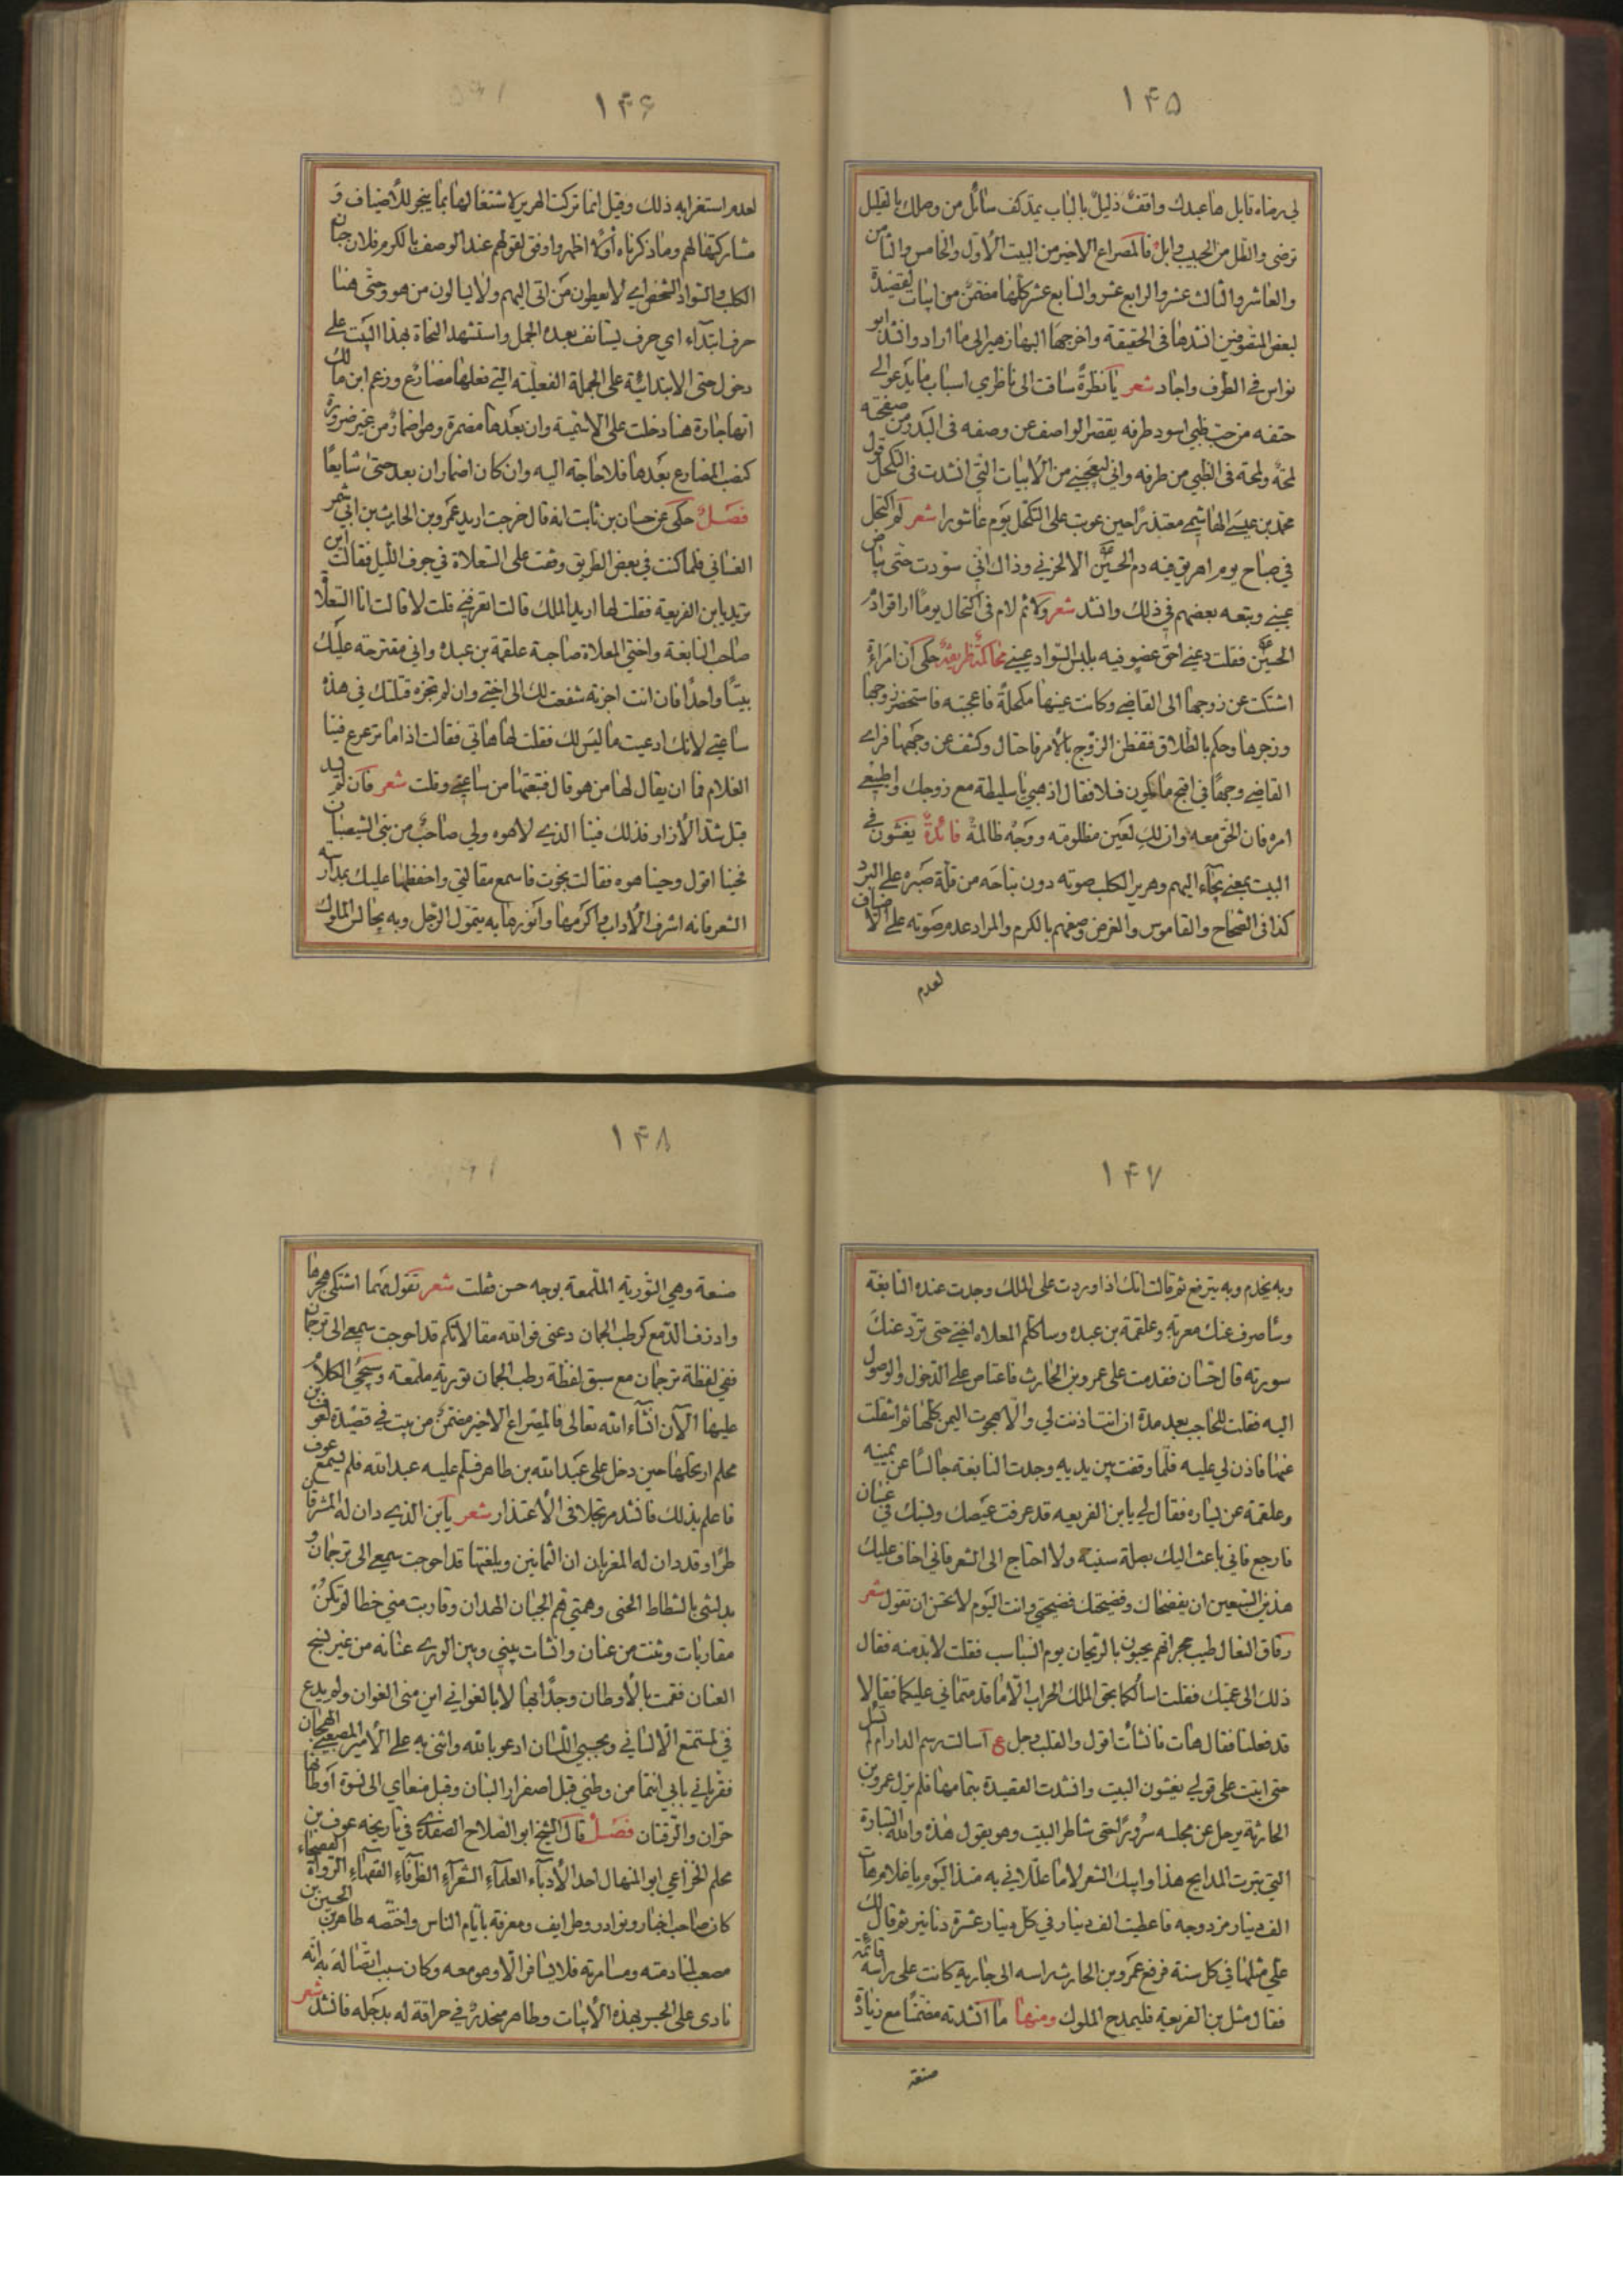 ۱۴۵
لي رضاء قابل ها عبدك واقف ذليل بالباب يمد كف سائل من وصلك بالقليل
ترضى والطل من الحبيب وابل فالمصراع الاخير من البيت الأول والخامس والثامن
والعاشر والثالث عشر والرابع عشر والسابع عشر كلها مضمن من ابيات لقصيدة
لبعض المتقدمين انشدها في الحقيقة واخرجها البهاء زهير الى ما اراد وانشد ابو
نواس في الطرف واجاد شعر يا نظرة ساقت الى ناظري اسباب ما يدعو الى
حتفه من حب ظبي اسود طرفه يقصر الواصف عن وصفه في البدر من صفحته
لمحة ولمحة في الظبي من طرفه واني ليعجبني من الأبيات التي انشدت في الكحل قول
محمد بن عيسى الهاشمي معتذرا حين عوتب على التكحل يوم عاشورا شعر لم اكتحل
في صباح يوم اهريق فيه دم الحسين الا لحزني وذاك اني سودت حتى بياض
عيني وتبعه بعضهم في ذلك وانشد شعر ولائم لام في اكتحال يوما اراقوا دم
الحسين فقلت دعني احق عضو فيه بلبس السواد عيني محاكمة ظريفة حكى ان امراة
اشتكت عن زوجها الى القاضي وكانت عينها مكحلة فاعجبته فاستحضر زوجها
وزجرها وحكم بالطلاق ففطن الزوج بالأمر فاحتال وكشف عن وجهها فراى
القاضي وجها في اقبح ما يكون فقال اذهبي يا سليطة مع زوجك واطيعي
امره فان الحق معه وان لك لعين مظلومة ووجه ظالمة فائدة يغشون في
البيت بمعنى يجاء اليهم وهرير الكلب صوته دون نباحه من قلة صبره على البرد
كذا في الصحاح والقاموس والغرض وصفهم بالكرم والمراد عدم صوته على الأضياف
لعدم
۱۴۶
لعدم استغرابه ذلك وقيل انما تركت الهرير لاشتغالها بما ينحر للأضياف و
مشاركتها لهم وما ذكرناه أولا اظهر واوفق لقولهم عند الوصف بالكرم فلان جبان
الكلب والسواد الشخص اي لا يعطون من اتى اليهم ولا يسالون من هو وحتى هنا
حرف ابتداء اي حرف يستانف بعده الجمل واستشهد النحاة بهذا البيت على
دخول حتى الابتدائية على الجملة الفعلية التي فعلها مضارع وزعم ابن مالك
انها جارة هنا دخلت على الاسمية وان بعدها مضمرة وهو اضمار من غير ضرورة
كنصب المضارع بعدها فلا حاجة اليه وان كان اضمار ان بعد حتى شايعا
فصل حكى عن حسان بن ثابت انه قال خرجت اريد عمرو بن الحارث بن ابي شمر
الغساني فلما كنت في بعض الطريق وقفت على السعلاة في جوف الليل فقالت اين
تريد يا بن الفريعة فقلت لها اريد الملك قالت اتعرفني قلت لا قالت انا السعلاة
صاحب النابغة واختي المعلاة صاحبة علقمة بن عبده واني مقترحة عليك
بيتا واحدا فان انت اجزته شفعت لك الى اختي وان لم تجزه قتلتك في هذه
ساعتي لأنك ادعيت ما ليس لك فقلت لها هاتي فقالت اذا ما ترعرع فينا
الغلام فما ان يقال لها من هو قال فتبعتها من ساعتي وقلت شعر فان لم يسد
قبل شد الأزار فذلك فينا الذي لا هوه ولي صاحب من بني الشيصبان
فحينا اقول وحينا هوه فقالت نجوت فاسمع مقالتي واحفظها عليك بمدارسة
الشعر فانه اشرف الأداب واكرمها وانورها به يتمول الرجل وبه يجالس الملوك
۱۴۷
وبه يخدم وبه يترفع ثم قالت انك اذا وردت على الملك وجدت عنده النابغة
وساصرف عنك معرته وعلقمة بن عبده وساكلم المعلاه اختي حتى ترد عنك
سورته قال حسان فقدمت على عمرو بن الحارث فاعتاص علي الدخول والوصول
اليه فقلت للحاجب بعد مدة ان انت اذنت لي والا هجوت اليمن كلها ثم انتقلت
عنها فاذن لي عليه فلما وقفت بين يديه وجدت النابغة جالسا عن يمينه
وعلقمة عن يساره فقال لي يا بن الفريعه قد عرفت عيصك ونسبك في غسان
فارجع فاني باعث اليك بصلة سنية ولا احتاج الى الشعر فاني اخاف عليك
هذين السبعين ان يفضحاك وفضيحتك فضيحتي وانت اليوم لا تحسن ان تقول شعر
رقاق النعال طيب حجراتهم يحيون بالريحان يوم السباسب فقلت لا بد منه فقال
ذلك الى عميك فقلت اسألكما بحق الملك الحراب الا ما قدمتماني عليكما فقالا
قد فعلنا فقال هات فانشأت اقول والقلب وجل ع اسالت رسم الدار ام لم تسل
حتى اتيت على قولي يغشون البيت وانشدت القصيدة بتمامها فلم يزل عمرو بن
الحارثة يرحل عن مجلسه سرورا حتى شاطر البيت وهو يقول هذه والله البتارة
التي تبترت المدايح هذا وابيك الشعر لا ما عللاني به منذ اليوم يا غلام هات
الف دينار مزدوجه فاعطيت الف دينار في كل دينار عشرة دنانير ثم قال لك
علي مثلها في كل سنة فرفع عمرو بن الحارث راسه الى جارية كانت على راسه قائمة
فقال مثل بن الفريعة فليمدح الملوك ومنها ما انشدته مضمنا مع زيادة
صنعة
۱۴۸
صنعة وهي التورية الملمعة بوجه حسن فقلت شعر تقول مهما اشتكي هجرها
واذرف الدمع كرطب الجمان دعني فوالله مقالاتكم قد احوجت سمعي الى ترجمان
ففي لفظة ترجمان مع سبق لفظة رطب الجمان تورية ملمعة وسيجئ الكلام
عليها الآن انشاء الله تعالى فالمصراع الاخير مضمن من بيت في قصيدة لعوف بن
محلم ارتجلها حين دخل على عبد الله بن طاهر فسلم عليه عبد الله فلم يسمع عوف
فاعلم بذلك فانشد مرتجلا في الأعتذار شعر يا بن الذي دان له المشرقان
طرا وقد دان له المغربان ان الثمانين وبلغتها قد احوجت سمعي الى ترجمان و
بدلتني بالشطاط الحنى وهمتي هم الجبان الهدان وقاربت مني خطا لم تكن
مقاربات وثنت من عنان وانشات بيني وبين الورى عنانه من غير نسج
العنان فقمت بالأوطان وجدا بها لا بالغواني اين مني الغوان ولم يدع
في لمستمتع الا لساني وبحسبي اللسان ادعو بالله واثني به على الأمير المصعبي الهجان
فقرباني بابي انتما من وطني قبل اصفرار البنان وقبل منعاي الى نسوة اوطانها
حران والرقتان فصل قال الشيخ ابو الصلاح الصفدي في تاريخه عوف بن
محلم الخزاعي ابو المنهال احد الأدباء العلماء الشعراء الظرفاء الفقهاء الرواة الفصحاء
كان صاحب اخبار ونوادر وطرايف ومعرفة بايام الناس واختصه طاهر بن الحسين بن
مصعب لمنادمته ومسامرته فلا يسافر الا وهو معه وكان سبب اتصاله به انه
نادى على الجسر بهذه الأبيات وطاهر منحدر في حراقة له بدجله فانشد شعر